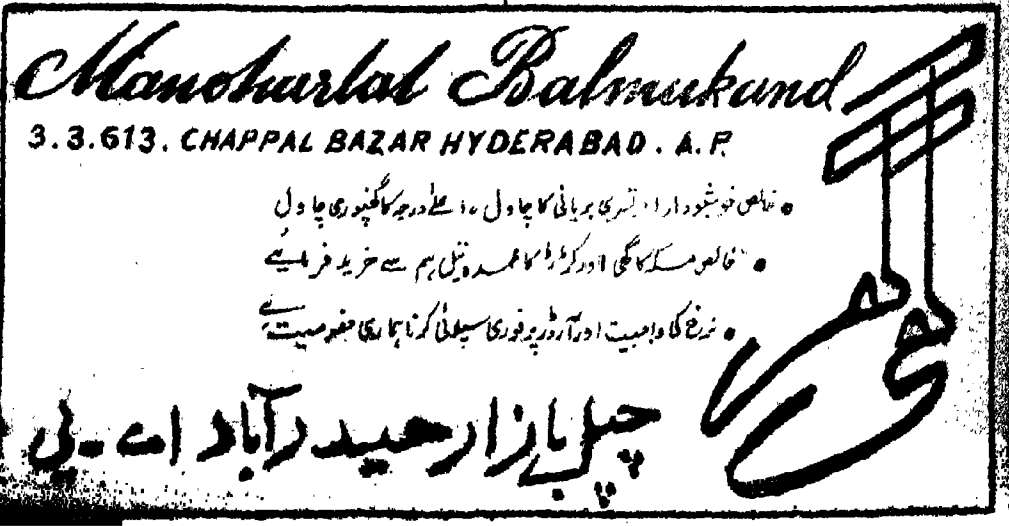 Manoharlal Balmukand
3.3.613. CHAPPAL BAZAR HYDERABAD. A.P.
• خالص خوشبودار امرتسری بریانی کا چاول ۔ اعلےٰ درجہ کا گھنپوری چاول
• خالص مسکہ کا گھی اور کرڑ کا عمدہ تیل ہم سے خرید فرمایئے
• نرخ کی واجبیت اور آرڈر پر فوری سپلائی کرنا ہماری خصوصیت ہے
چپل بازار حیدرآباد اے ۔ پی